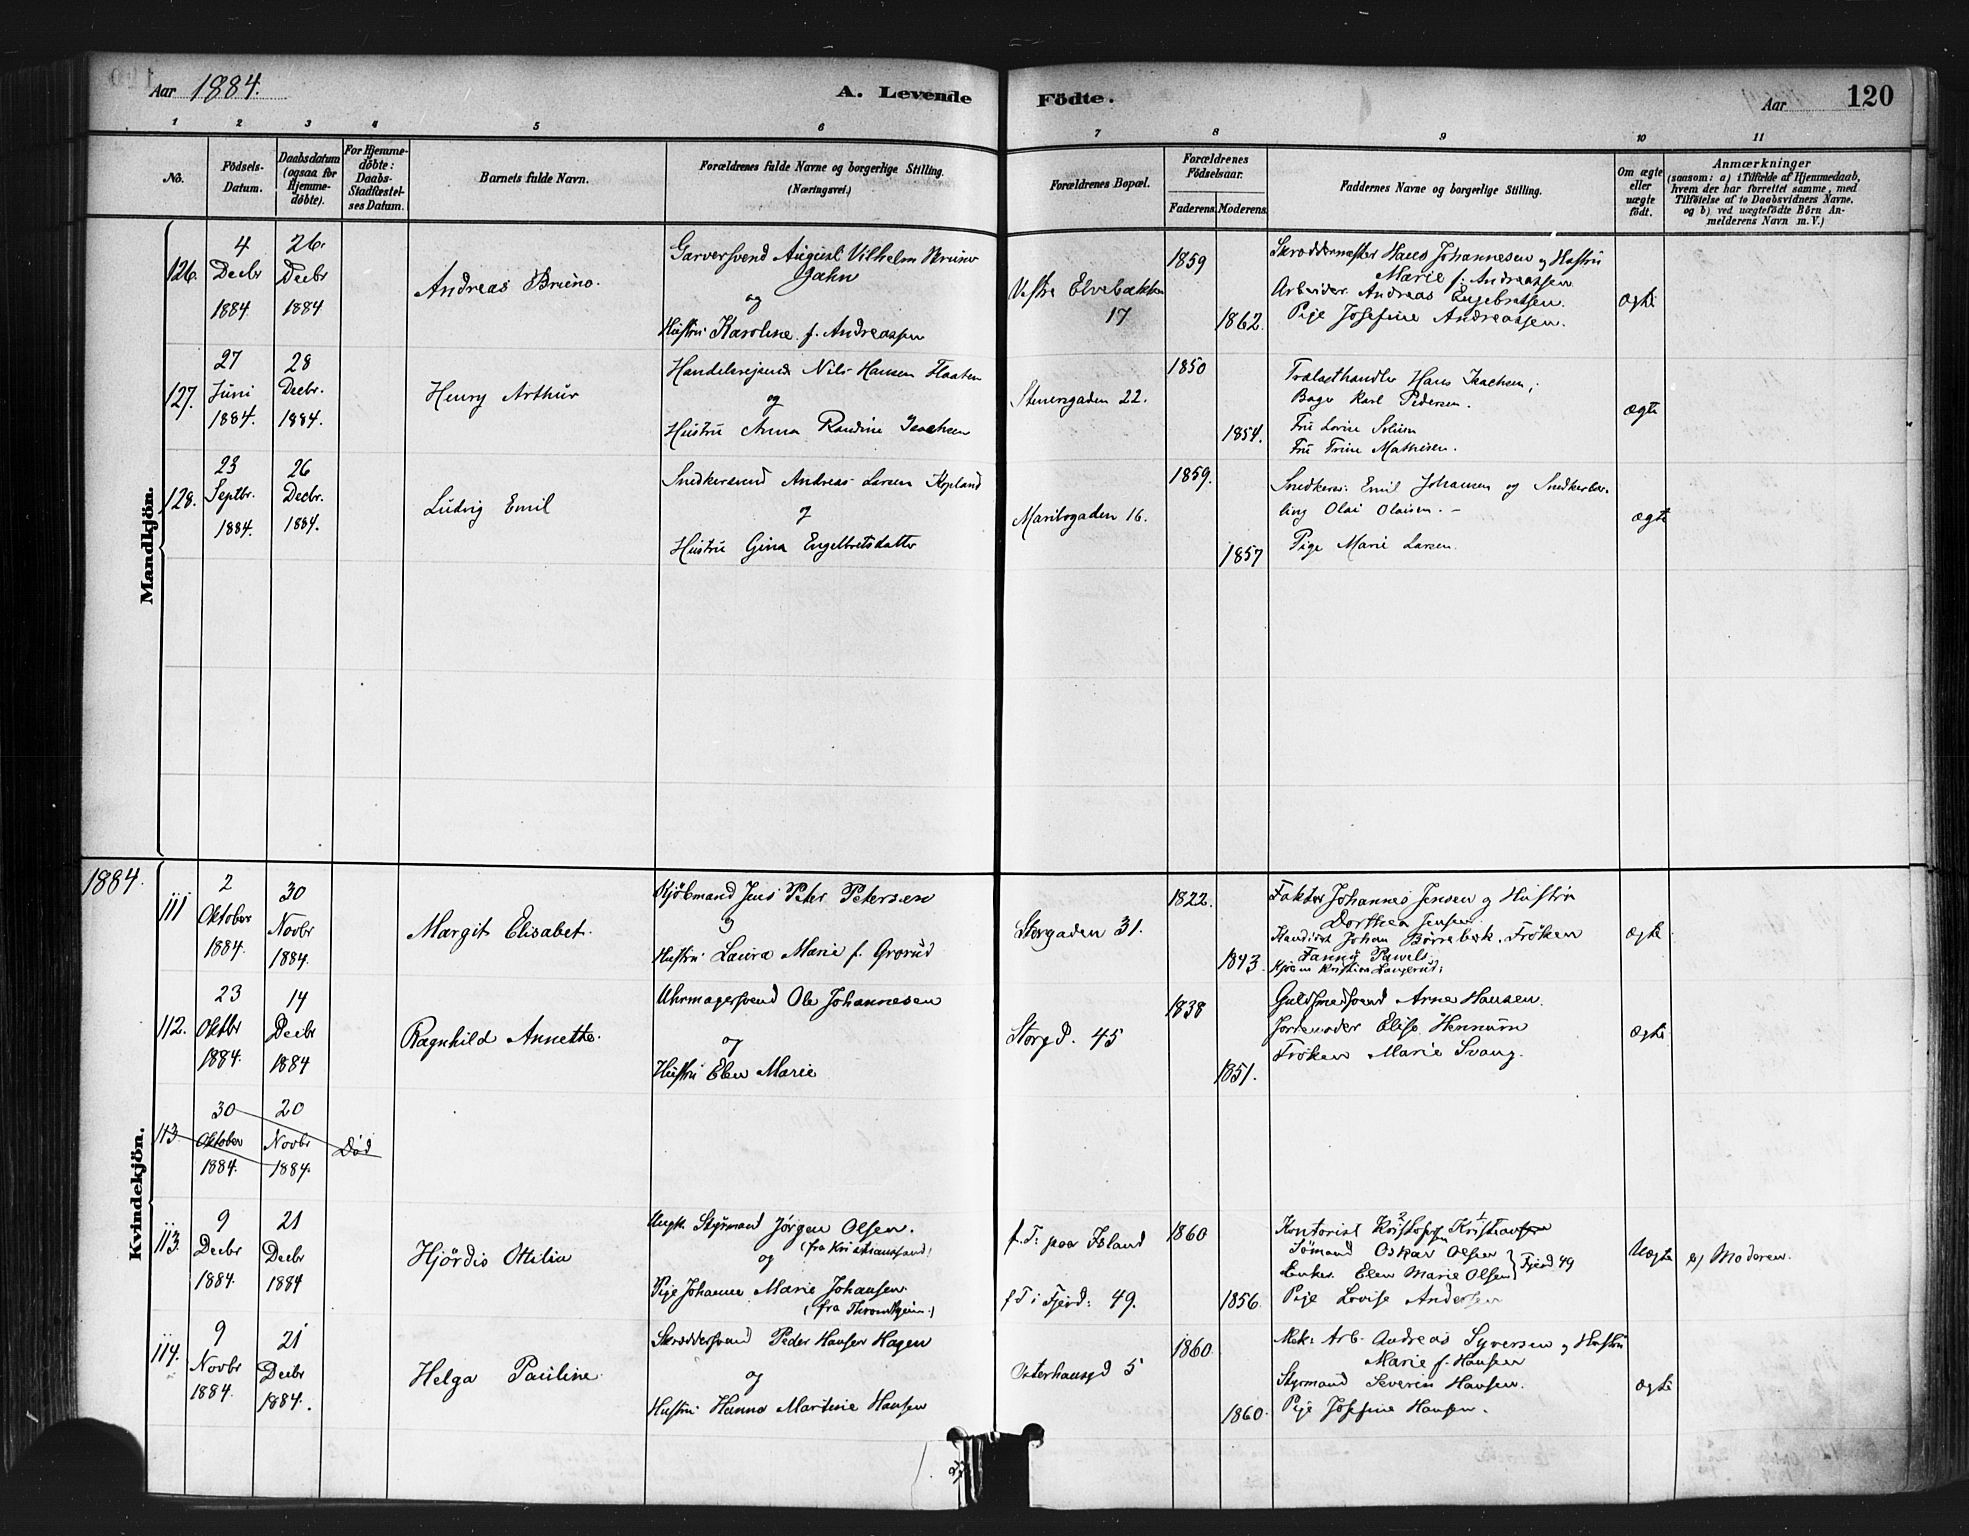 Aar 1884.
A. Levende Födte.
Aar
120
1 2 3 4 5 6 7 8 9 10 11
No.
Födsels-Datum.
Daabsdatum (ogsaa for Hjemme-döbte).
For Hjemme-döbte: Daabs-Stadfæstel-ses Datum.
Barnets fulde Navn.
Forældrenes fulde Navne og borgerlige Stilling.
(Næringsvei.)
Forældrenes Bopæl.
Forældrenes Födselsaar.
Faderens. Moderens.
Faddernes Navne og borgerlige Stilling.
Om ægte eller uægte födt.
Anmærkninger
(saasom: a) i Tilfælde af Hjemmedaab,
hvem der har forrettet samme, med
Tilföielse af to Daabsvidners Navne,
og b) ved uægtefödte Börn An-
melderens Navn m. V.)
Mandkjön.
126.
4 Decbr 1884
26 Decbr 1884
Andreas Bruno.
Garversvend August Vilhelm Bruno
Jahn
og
Hustru Karoline f. Andreassen
Vestre Elvebakken
17
1859
1862.
Skræddermester Hans Johannesen og Hustru
Marie f. Andreassen
Arbeider Andreas Engebretsen.
Pige Josefine Andreassen.
ægte
127.
27 Juni 1884.
28 Decbr. 1884.
Henry Arthur
Handelsrejsende Nils Hansen Flaaten
og
Hustru Anna Randine Isachsen
Stenersgaden 22.
1850
1854.
Trælasthandler Hans Isachsen;
Bager Karl Pedersen.
Fru Lovise
Fru Trine Mathisen.
ægte
128.
23 Septbr. 1884.
26 Decbr. 1884.
Ludvig Emil
Snedkersvend Andreas Larsen
og
Hustru Gina Engelbretsdatter
Maribogaden 16.
1859.
1857
Snedkersv. Emil Johansen og Snedkerlær-
ling Olai Olaisen. -
Pige Marie Larsen.
ægte
1884.
Kvindekjön.
111
2 Oktober 1884.
30 Novbr 1884.
Margit Elisabet.
Kjöbmand Jens Peter Petersen
og
Hustru Laura Marie f. Grorud
Storgaden 31.
1822.
1843.
Faktor Johannes Jensen og Hustru
Dorthea Jensen.
Kandidat Johan Börrebæk. Fröken
Fanny Pawels.
Kjöbm Kristian Langerud;
ægte
112.
23 Oktbr 1884.
14 Decbr 1884
Ragnhild Annette.
Uhrmagersvend Ole Johannesen
og
Hustru Elen Marie
Storgd. 45
1838
1851.
Guldsmedsvend Arne Hansen.
Jordemoder Elise Hennum
Fröken Marie Svang.
ægte
113.
30 Oktober 1884.
20 Novbr 1884.
Död
113.
9 Decbr 1884.
21 Decbr 1884
Hjördis Ottilia
Ungk. Styrmand Jörgen Olsen.
(fra Kristianssand)
og
Pige Johanne Marie Johansen
(fra Throndhjem.)
f. T. paa Island
f T i Fjerd: 49.
1860
1856.
Kontorist Kristofer Kristiansen
Sömand Oskar Olsen
Enke Elen Marie Olsen } Fjerd 49
Pige Lovise Andersen
Uægte
b) Moderen.
114.
9 Novbr 1884.
21 Decbr 1884.
Helga Pauline.
Skræddersvend Peder Hansen Hagen
og
Hustru Hanna Martine Hansen
Osterhausgd 5
1860
1860.
Mek: Arb. Andreas Syversen og Hustru
Marie f. Hansen
Styrmand Severin Hansen.
Pige Josefine Hansen.
ægte